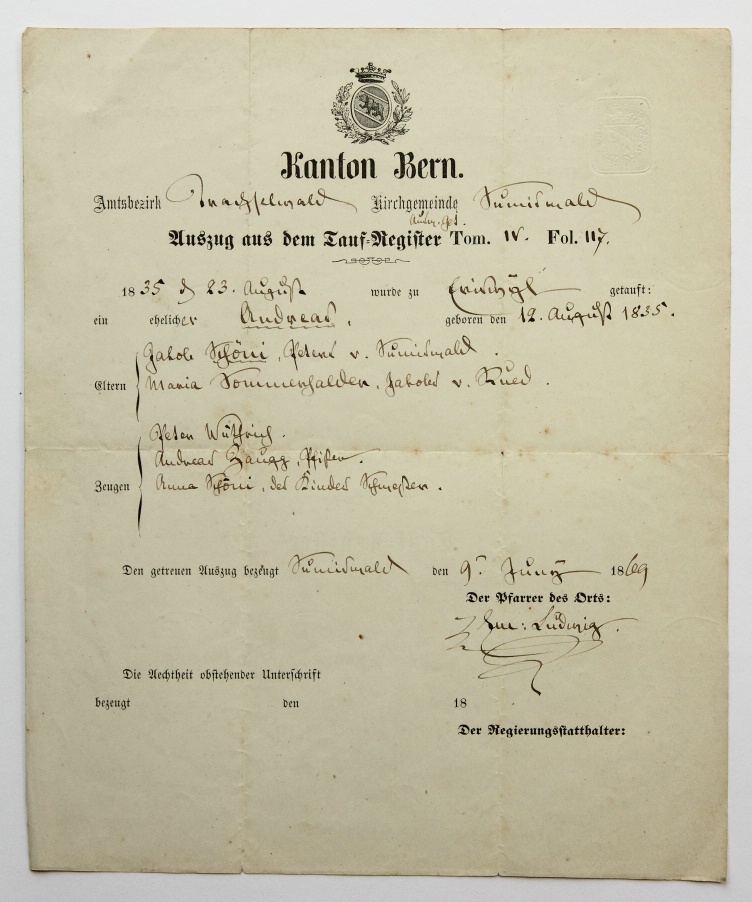 Kanton Bern.
Amtsbezirk Trachselwald Kirchgemeinde Sumiswald
Auszug aus dem Tauf-Register Tom. IV. Fol. 117.
1835 d 23. August wurde zu getauft:
ein ehelicher Andreas, geboren den 12. August 1835.
Jakob Schöni, Peters v. Sumiswald.
Eltern
Maria Sommerhalder, Jakobs v. Rued.
Peter Wüthrich.
Andreas Zaugg, Pfister.
Zeugen
Anna Schöni, des Kindes Schwester.
Den getreuen Auszug bezeugt Sumiswald den 9. Juny 1869
Der Pfarrer des Orts:
Ludwig.
Die Aechtheit obstehender Unterschrift
bezeugt den 18
Der Regierungsstatthalter: